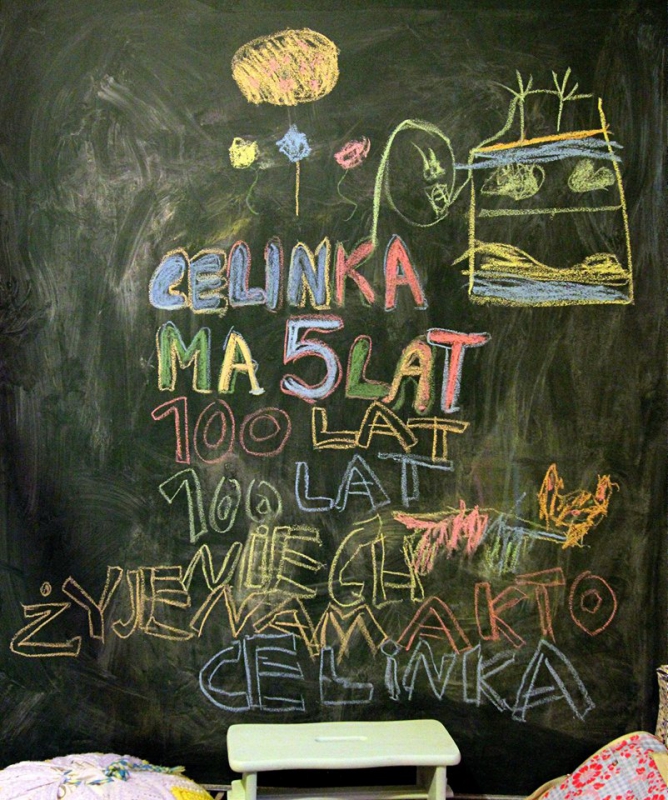 CELINKA
MA 5 LAT
100 LAT
100 LAT
NIECH
ŻYJE NAM A KTO
CELINKA